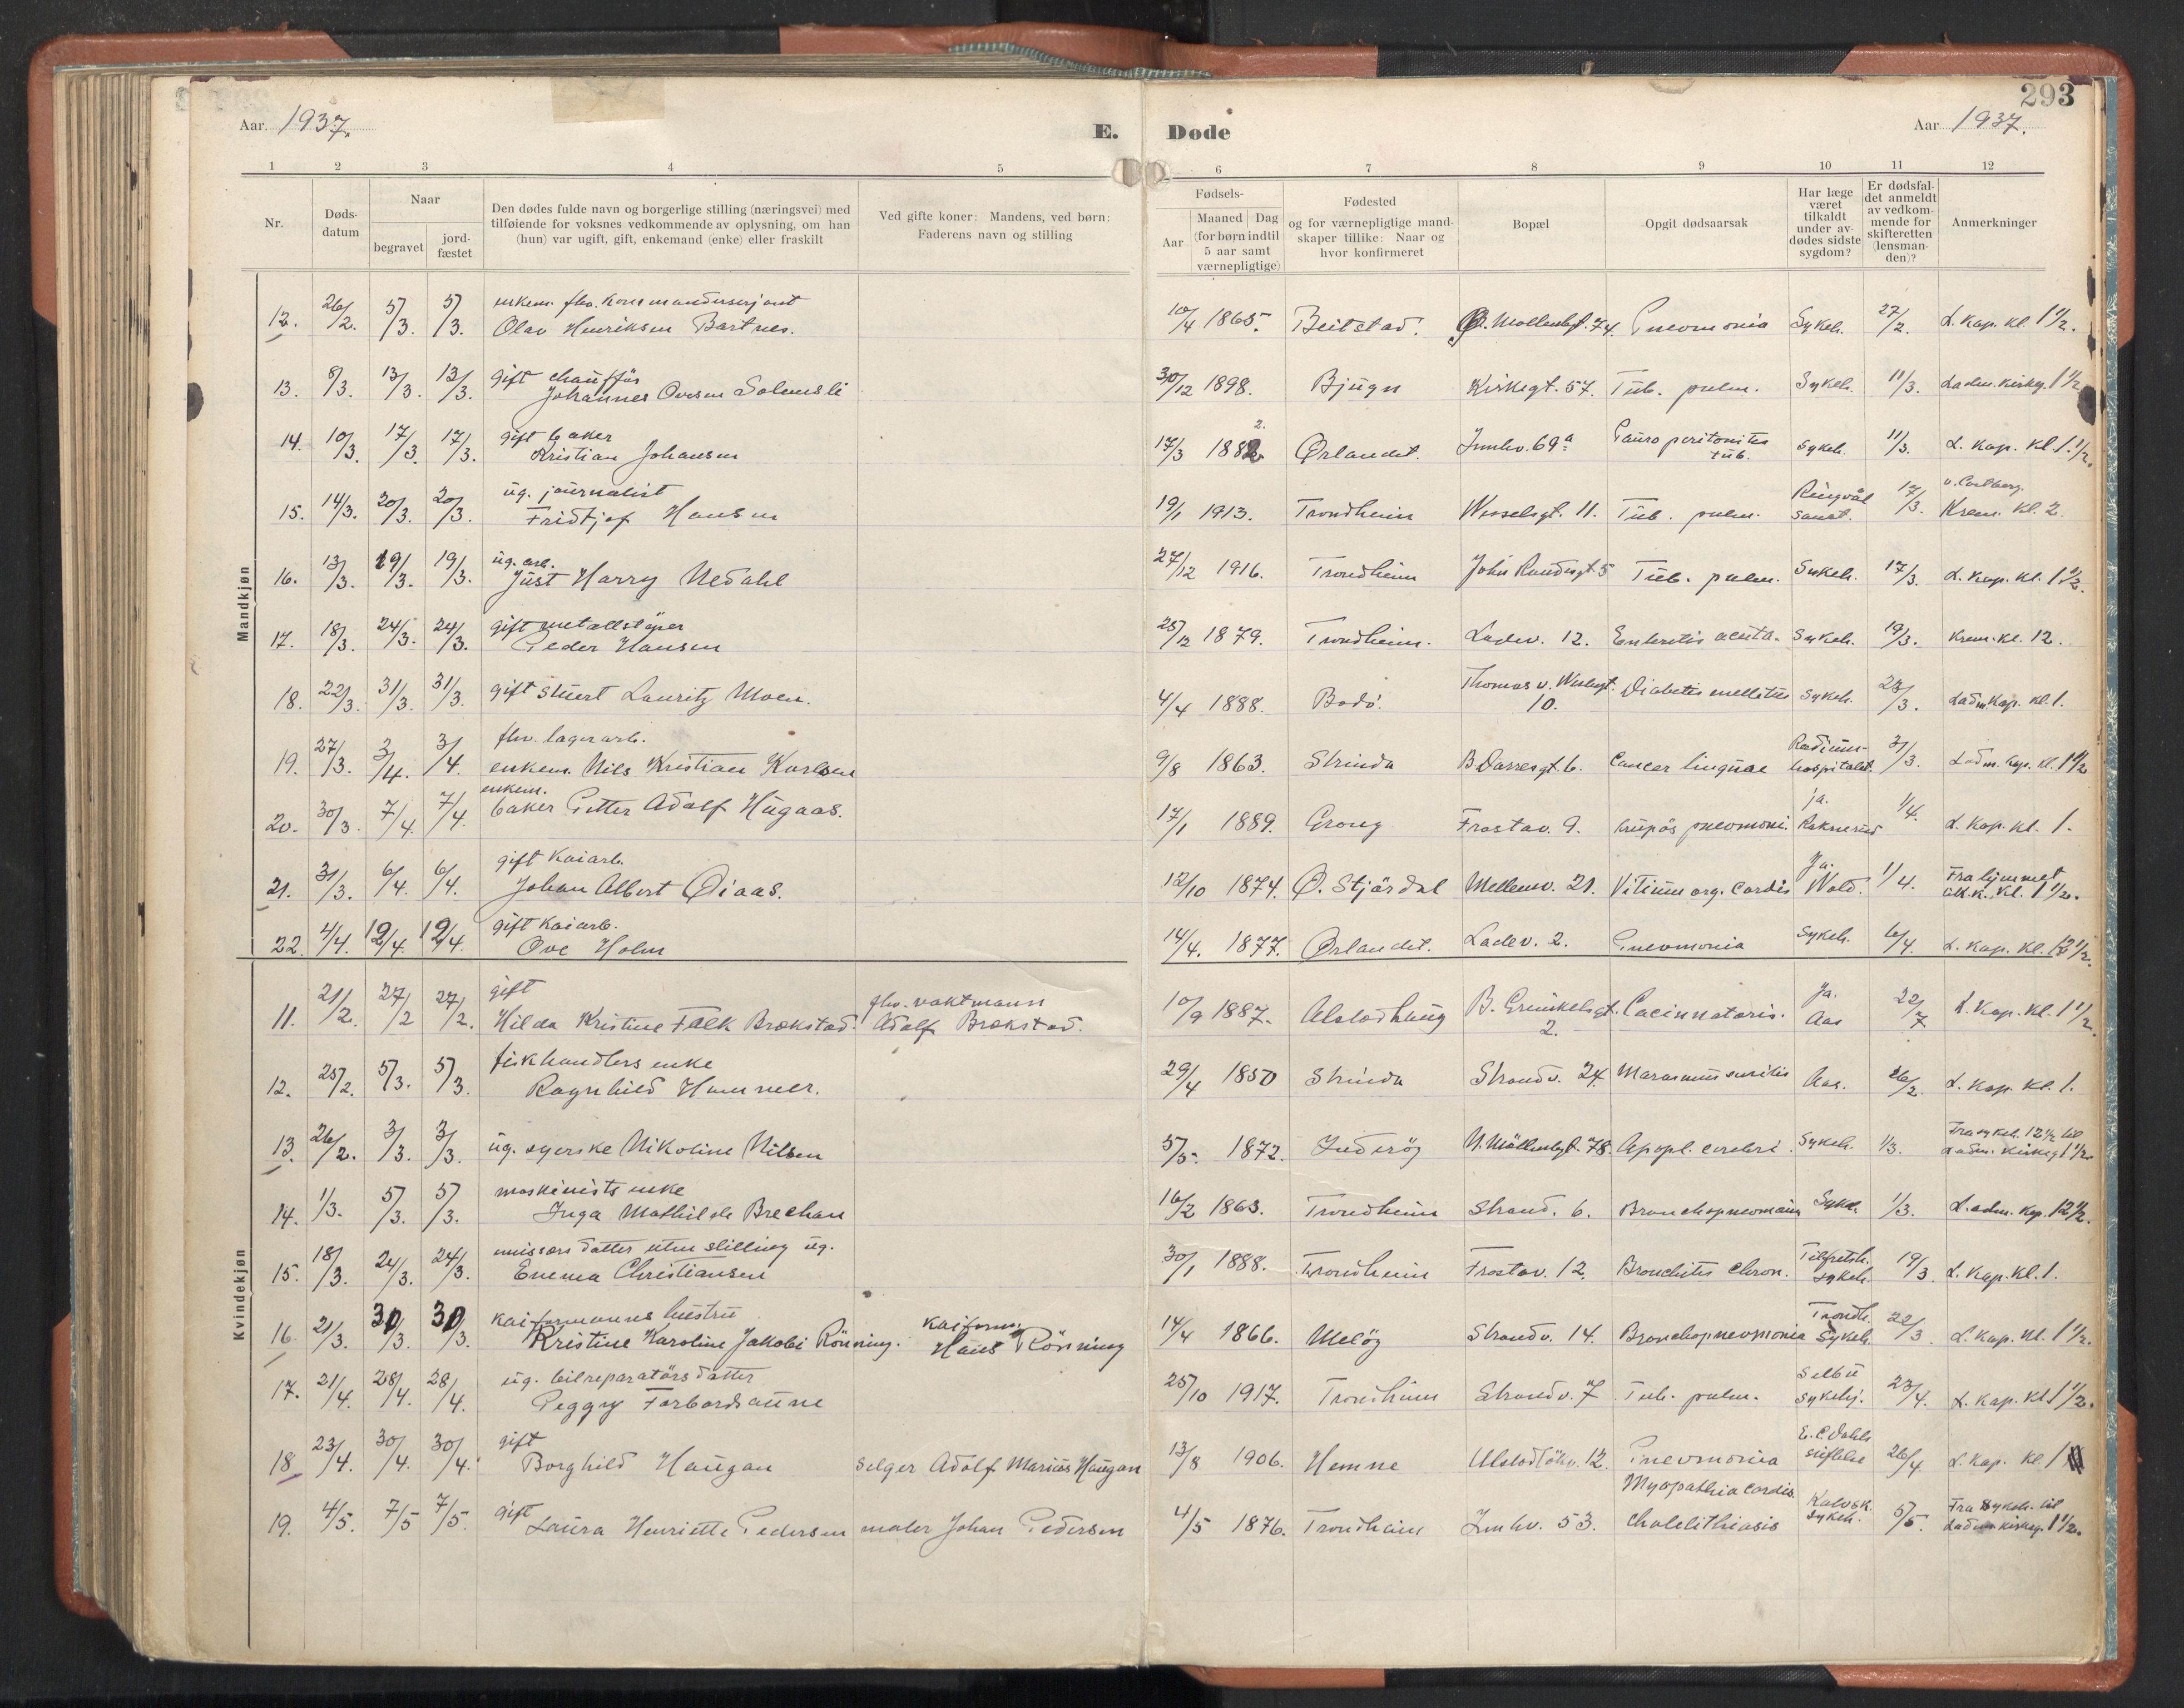 293
Aar. 1937. E. Døde Aar 1937.
1 2 3 4 5 6 7 8 9 10 11 12
Nr.
Døds-
datum
Naar
begravet
jord-
fæstet
Den dødes fulde navn og borgerlige stilling (næringsvei) med
tilføiende for voksnes vedkommende av oplysning, om han
(hun) var ugift, gift, enkemand (enke) eller fraskilt
Ved gifte koner: Mandens, ved børn:
Faderens navn og stilling
Fødsels-
Aar
Maaned Dag
(for børn indtil
5 aar samt
værnepligtige)
Fødested
og for værnepligtige mand-
skaper tillike: Naar og
hvor konfirmeret
Bopæl
Opgit dødsaarsak
Har læge
været
tilkaldt
under av-
dødes sidste
sygdom?
Er dødsfal-
det anmeldt
av vedkom-
mende for
skifteretten
(lensman-
den)?
Anmerkninger
Mandkjøn
enkem. fhv.
12. 26/2. 5/3. 5/3. Olav Henriksen Bartnes. 10/4 1865. Beitstad. Ø. Mollenbgt. 74. Pneomonia Sykeh. 27/2. L. Kap. kl. 1 1/2.
gift chauffør
13. 8/3. 13/3. 13/3. Johannes Ovesen Solemsli 30/12 1898. Bjugn Kirkegt. 57. Tub. pulm. Sykeh. 11/3. Ladm. kirkeg. 1 1/2
gift baker
14. 10/3. 17/3. 17/3. Kristian Johansen 17/3 1882 Ørlandet. Innhv. 69a peritonitis tub. Sykeh. 11/3. L. Kap. kl. 1 1/2.
ug. journalist
15. 14/3. 20/3. 20/3. Fridtjof Hansen 19/1 1913. Trondheim Wesselsgt. 11. Tub. pulm. Ringvål sanat. 17/3. Krem. kl. 2.
ug. arb.
16. 13/3. 19/3. 19/3. Just Harry Nedahl 27/12 1916. Trondheim John Rundesgt. 5 Tub. pulm. Sykeh. 17/3. L. Kap. kl. 1 1/2.
gift metallstøper
17. 18/3. 24/3. 24/3. Peder Hansen 25/12 1879. Trondheim. Ladev. 12. Enteritis acuta. Sykeh. 19/3. Krem. kl. 12.
18. 22/3. 31/3. 31/3. gift stuert Lauritz Moen. 4/4 1888. Bodö. Thomas v. Westgt. 10. Diabetis mellitus sykeh. 23/3. Ladm. Kap. kl. 1.
fhv. lagerarb.
19. 27/3. 3/4. 3/4. enkem. Nils Kristian Karlsen 9/8 1863. Strinda B. Dassesgt. 6. Cancer linguae Radium-hospitalet. 31/3. Ladm. Kap. kl. 1 1/2
enkem.
20. 30/3. 7/4. 7/4. baker Petter Adolf Hugaas. 17/1 1889. Grong Frostav. 9. krupös pneomoni. ja. Raknerud 1/4. L. Kap. kl. 1.
gift kaiarb.
21. 31/3. 6/4. 6/4. Johan Albert Øiaas. 12/10 1874. Ø. Stjördal Mellemv. 21. Vitium org. cordis Ja. Wold. 1/4. Fra hjemmet kl. 1 1/2.
gift kaiarb.
22. 4/4. 12/4. 12/4. Ove Holm 14/4. 1877. Ørlandet. Ladev. 2. Pneomonia Sykeh. 6/4. L. Kap. kl. 12 1/2.
Kvindekjøn
gift fhv. vaktmann
11. 21/2. 27/2 27/2. Hilda Kristine Falk Brækstad. Adolf Brækstad. 10/9 1887. Alstadhaug B. Grinkelsgt. 2. Ja. Aas 22/7 L. Kap. kl. 1 1/2.
fiskhandlers enke
12. 25/2. 5/3. 5/3. Ragnhild Hammer. 29/4 1850 Strinda Strandv. 24. Marasmus senilis Aas. 26/2. L. Kap. kl. 1.
13. 26/2. 3/3. 3/3. ug. syerske Nikoline Nilsen 5/5. 1872. Inderöy N. Möllenbgt. 78. Apopl. cerebri. Sykeh. 1/3. Fra sykeh. 12 1/2 til Ladm. kirkeg 1 1/2.
maskinists enke
14. 1/3. 5/3. 5/3. Inga Mathilde Brechan 16/2 1863. Trondheim Strandv. 6. Bronchopneomonia Sykeh. 1/3. Ladm. Kap. 12 1/2.
datter uten stilling ug.
15. 18/3. 24/3. 24/3. Emma Christiansen 30/1 1888. Trondheim Frostav. 12. Bronchitis chron. sykeh. 19/3. L. Kap. kl. 1.
kaiformanns hustru kaiform.
16. 21/3. 30/3. 30/3. Kristine Karoline Jakobi Rönning. Hans Rönning 14/4 1866. Melöy Strandv. 14. Bronchopneomonia Trondh. Sykeh. 22/3. L. Kap. kl. 1 1/2.
ug. bilreparatörs datter
17. 21/4. 28/4. 28/4. Peggy Forbordsaune 25/10 1917. Trondheim Strandv. 7 Tub. pulm. Selbu Sykehj. 23/4. L. Kap. kl. 1 1/2.
gift
18. 23/4. 30/4. 30/4. Borghild Haugan selger Adolf Marius Haugan 13/8 1906. Hemne Ulstadløkv. 12. Pneomonia E. C. Dahls stiftelse 26/4. L. Kap. kl. 1
Myopathia cordis
19. 4/5. 7/5 7/5. gift Laura Henriette Pedersen maler Johan Pedersen 4/5 1876. Trondheim Innhv. 53. cholelithiasis Kalvsk. sykeh. 5/5. Fra sykeh. til Ladm. kirkeg. 1 1/2.